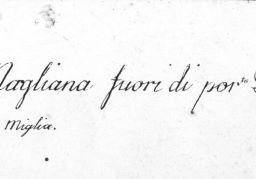 Magliana fuori di por.ta
Miglia.